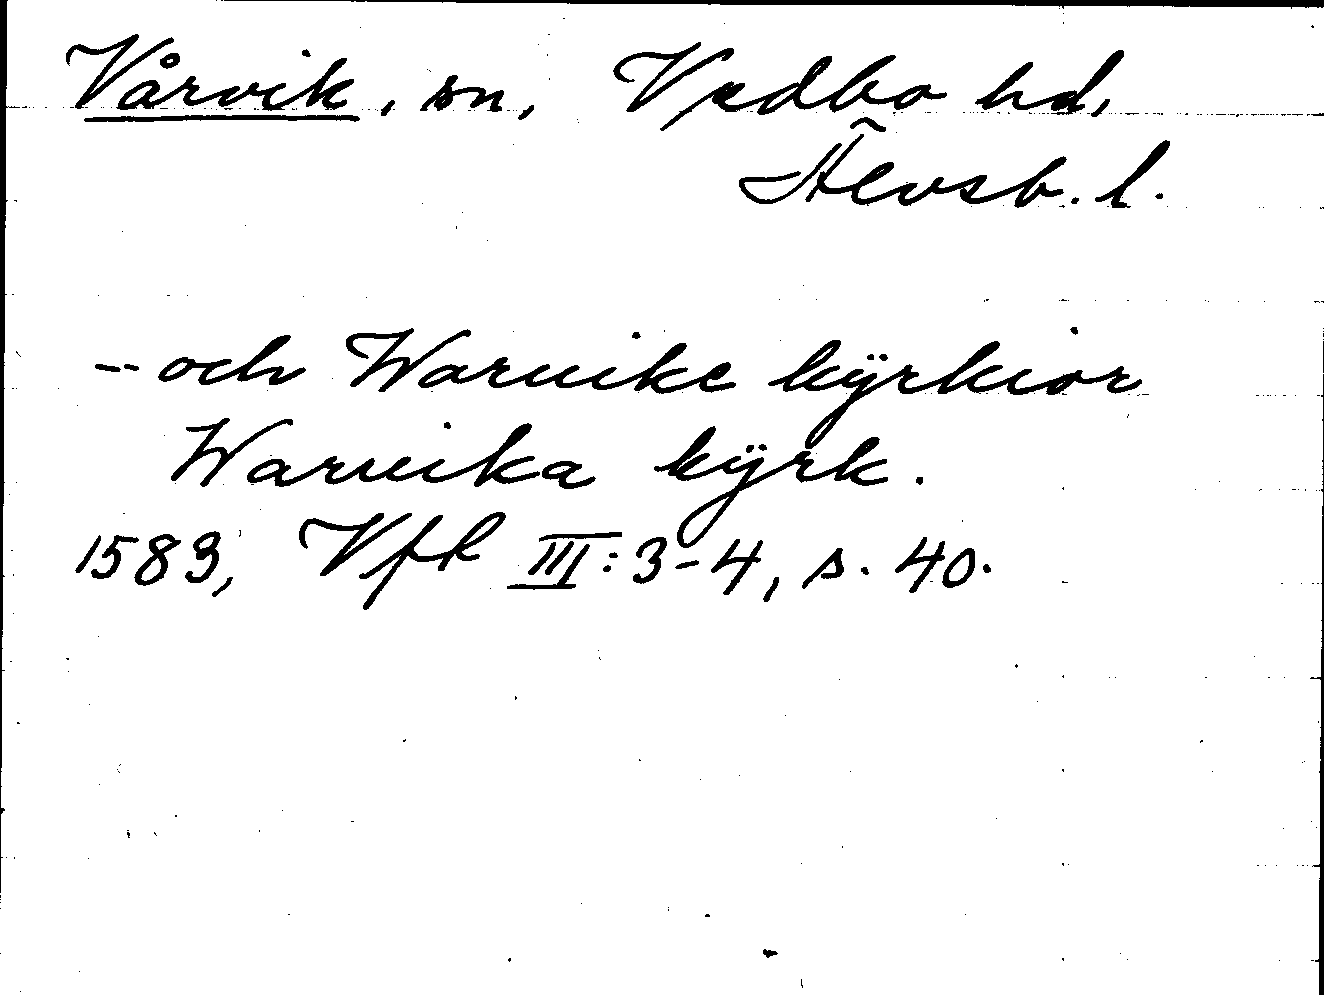 Vårvik, sn, Vedbo hd,
Älvsb. l.
-- och Waruike kÿrkior
Waruika kÿrk.
1583, Vfk III:3-4, s. 40.